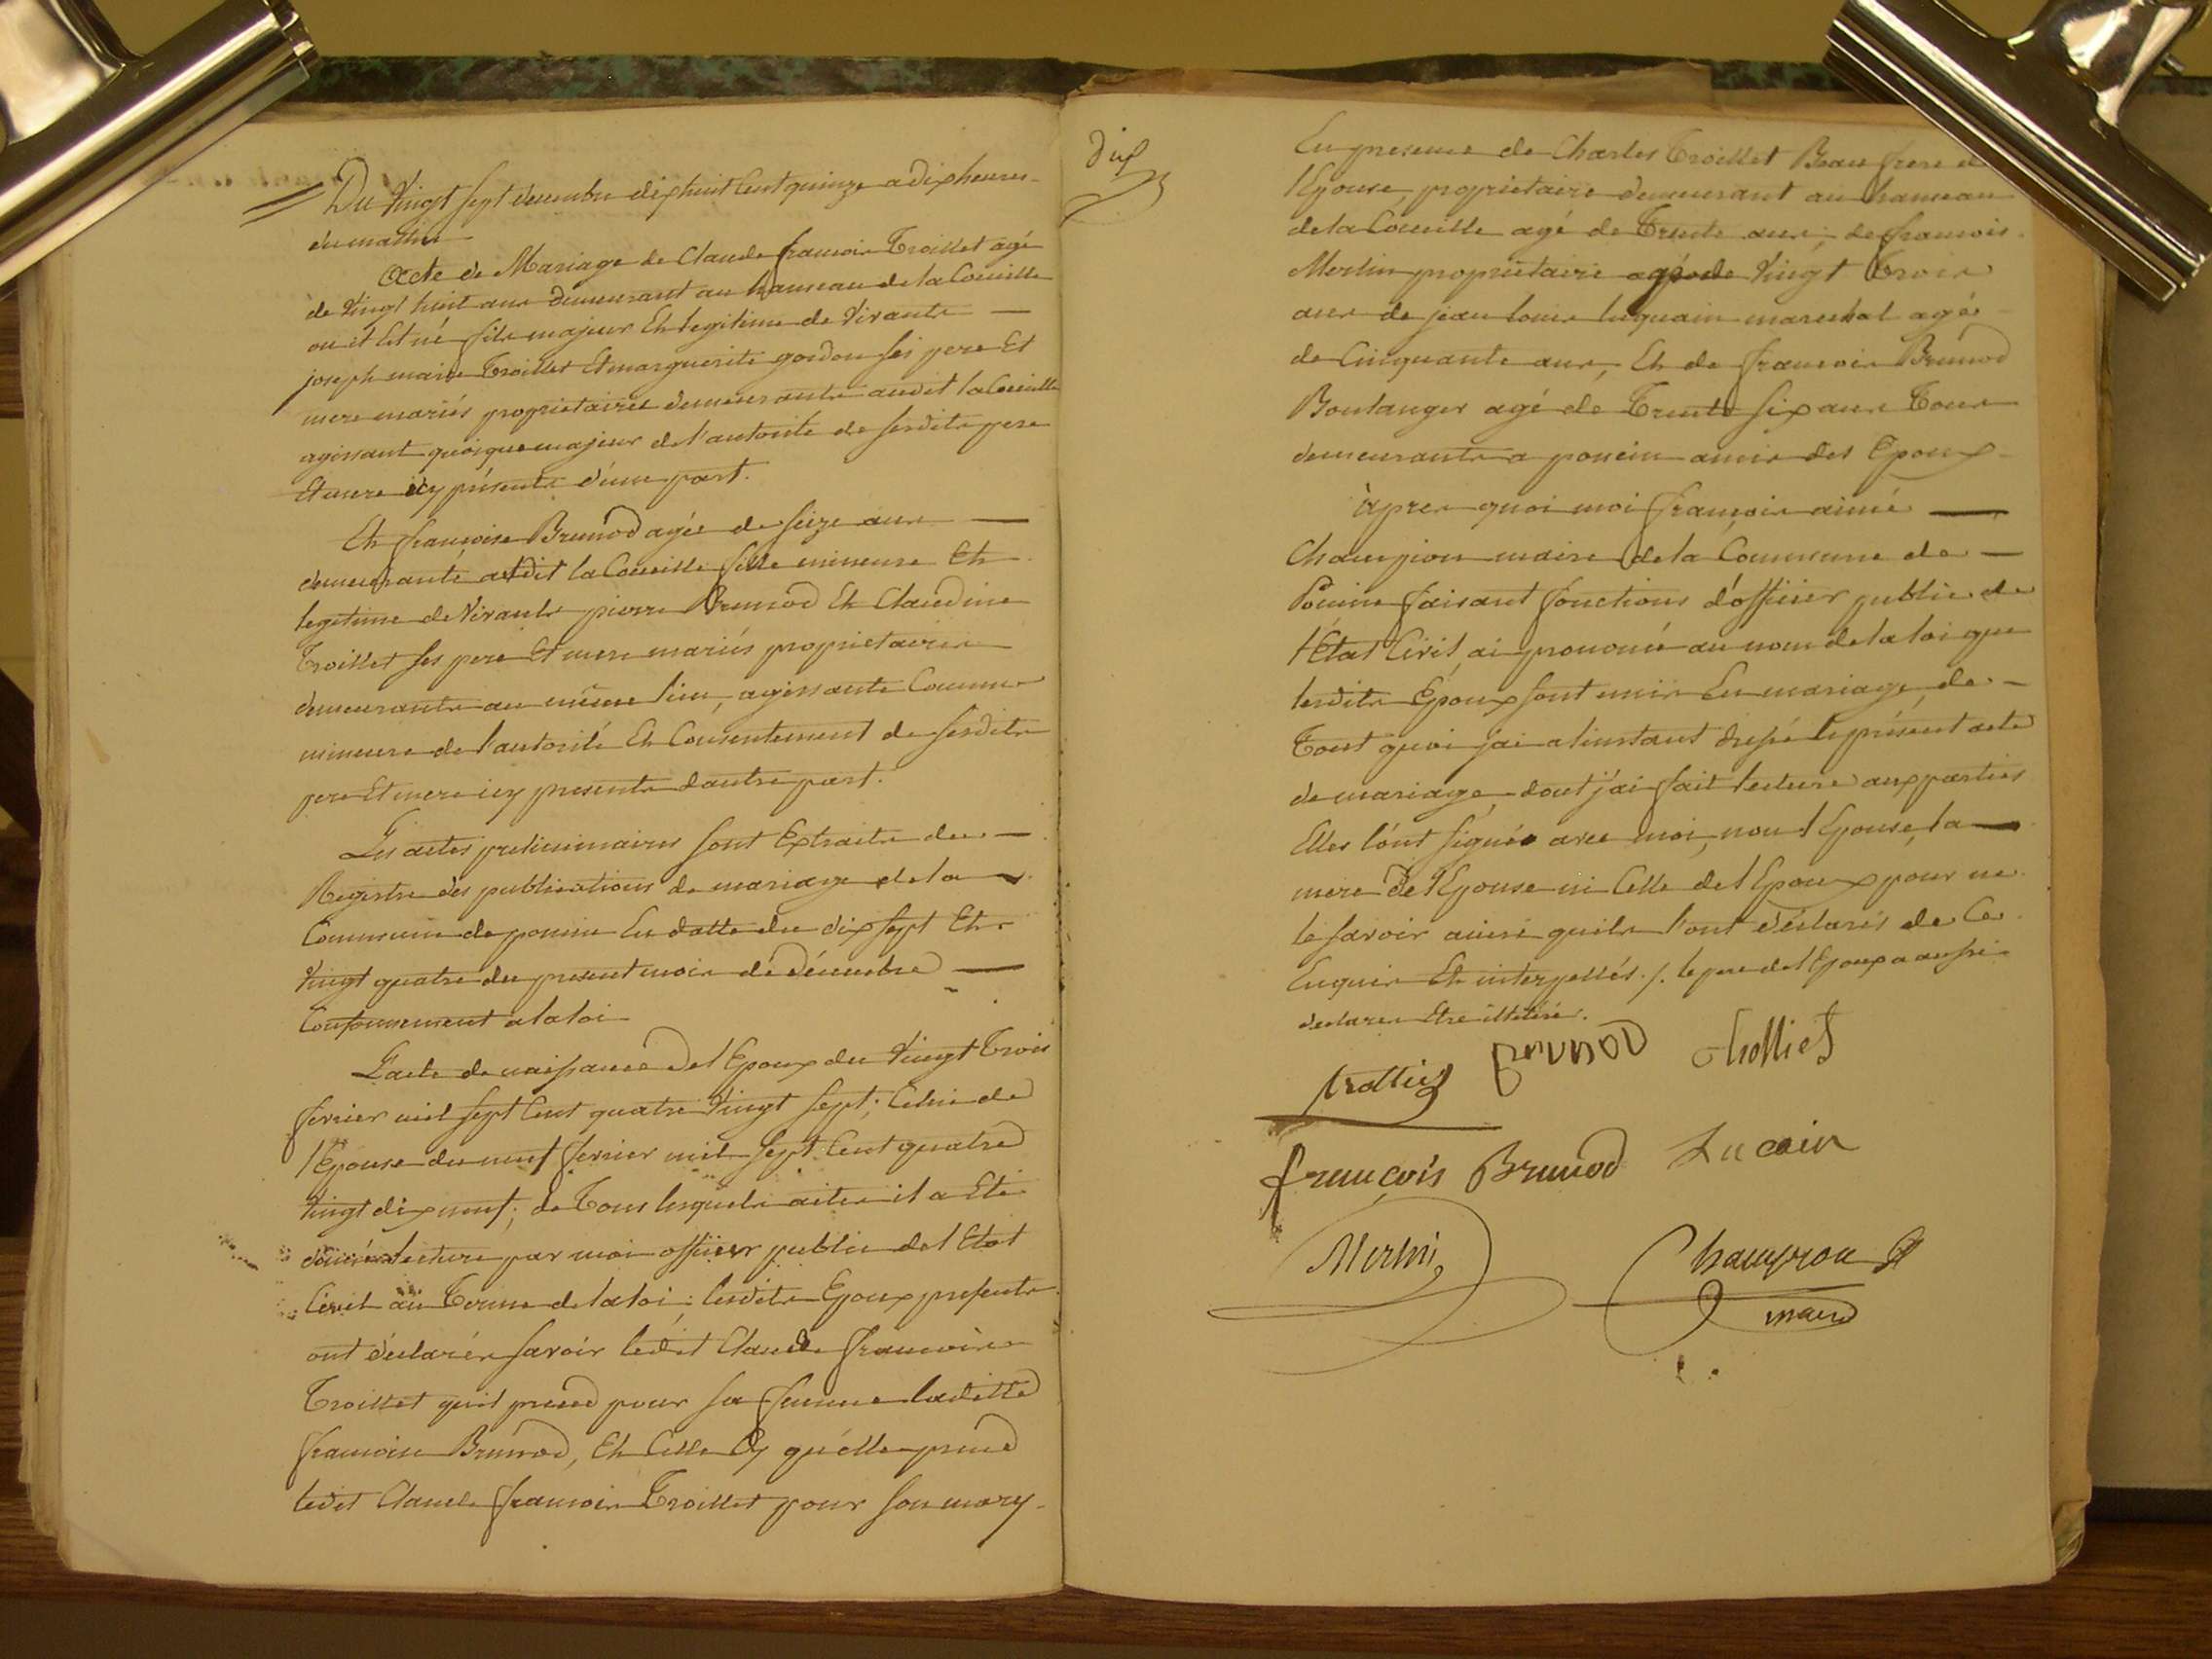 Du vingt sept decembre dix huit cent quinze a dix heures
du matin
Acte de Mariage de Claude francois Troillet agé
de vingt huit ans demeurant au hameau de la Coueille
ou il est né fils majeur et legitime de vivants
joseph marie Troillet et marguerite gordon ses pere et
mere mariés proprietaires demeurants audit la Coueille
agissant quoique majeur de l'autorité de sesdits pere
et mere icy présents d'une part.
Et francoise Brunod agée de seize ans
demeurante audit la Coueille fille mineure et
legitime de vivants pierre Brunod et Claudine
Troillet ses pere et mere mariés proprietaires
demeurants au même lieu, agissante Comme
mineure de l'autorité et Consentement de sesdits
pere et mere icy presents d'autre part.
Les actes preliminaires sont Extraits des
Registre des publications de mariage de la
Commune de poncin En datte du dix sept et
vingt quatre du present mois de décembre
Conformement a la loi
L'acte de naissance de l'Epoux du vingt trois
fevrier mil sept cent quatre vingt sept; celui de
l'Epouse du neuf fevrier mil sept cent quatre
vingt dix neuf; de Tous lesquels actes il a été
donné lecture par moi officier public de l'Etat
Civil au Terme de la loi: lesdits Epoux presents
ont déclarés savoir ledit Claude francois
Troillet qu'il prend pour sa femme laditte
francoise Brunod, et Celle Cy qu'elle prend
ledit Claude francois Troillet pour son mary
dix
En presence de Charles Troillet Beau frere de
l'Epouse, proprietaire demeurant au hameau
de la Coueille agé de Trente ans; de francois
Merlin proprietaire agé de vingt trois
ans de jean louis luquain marechal agé
de Cinquante ans, et de francois Brunod
Boulanger agé de Trente six ans Tous
demeurants a poncin amis des Epoux
après quoi moi francois aimé
Champion maire de la Commune de
Poncin faisant fonctions d'officier public de
l'Etat Civil, ai prononcé au nom de la loi que
lesdits Epoux sont unis En mariage, de
Tout quoi j'ai a l'instant dressé le présent acte
de mariage, dont j'ai fait lecture aux parties
Elles l'ont signée avec moi, non l'Epouse, la
mere de l'Epouse ni Celle de l'Epoux pour ne
le savoir ainsi qu'ils l'ont déclarés de Ce
Enquis et interpellés ./. le pere de l'Epoux a aussi
declarer Etre illitéré.
Brunod
francois Brunod Lucain
Merlin Champion
maire